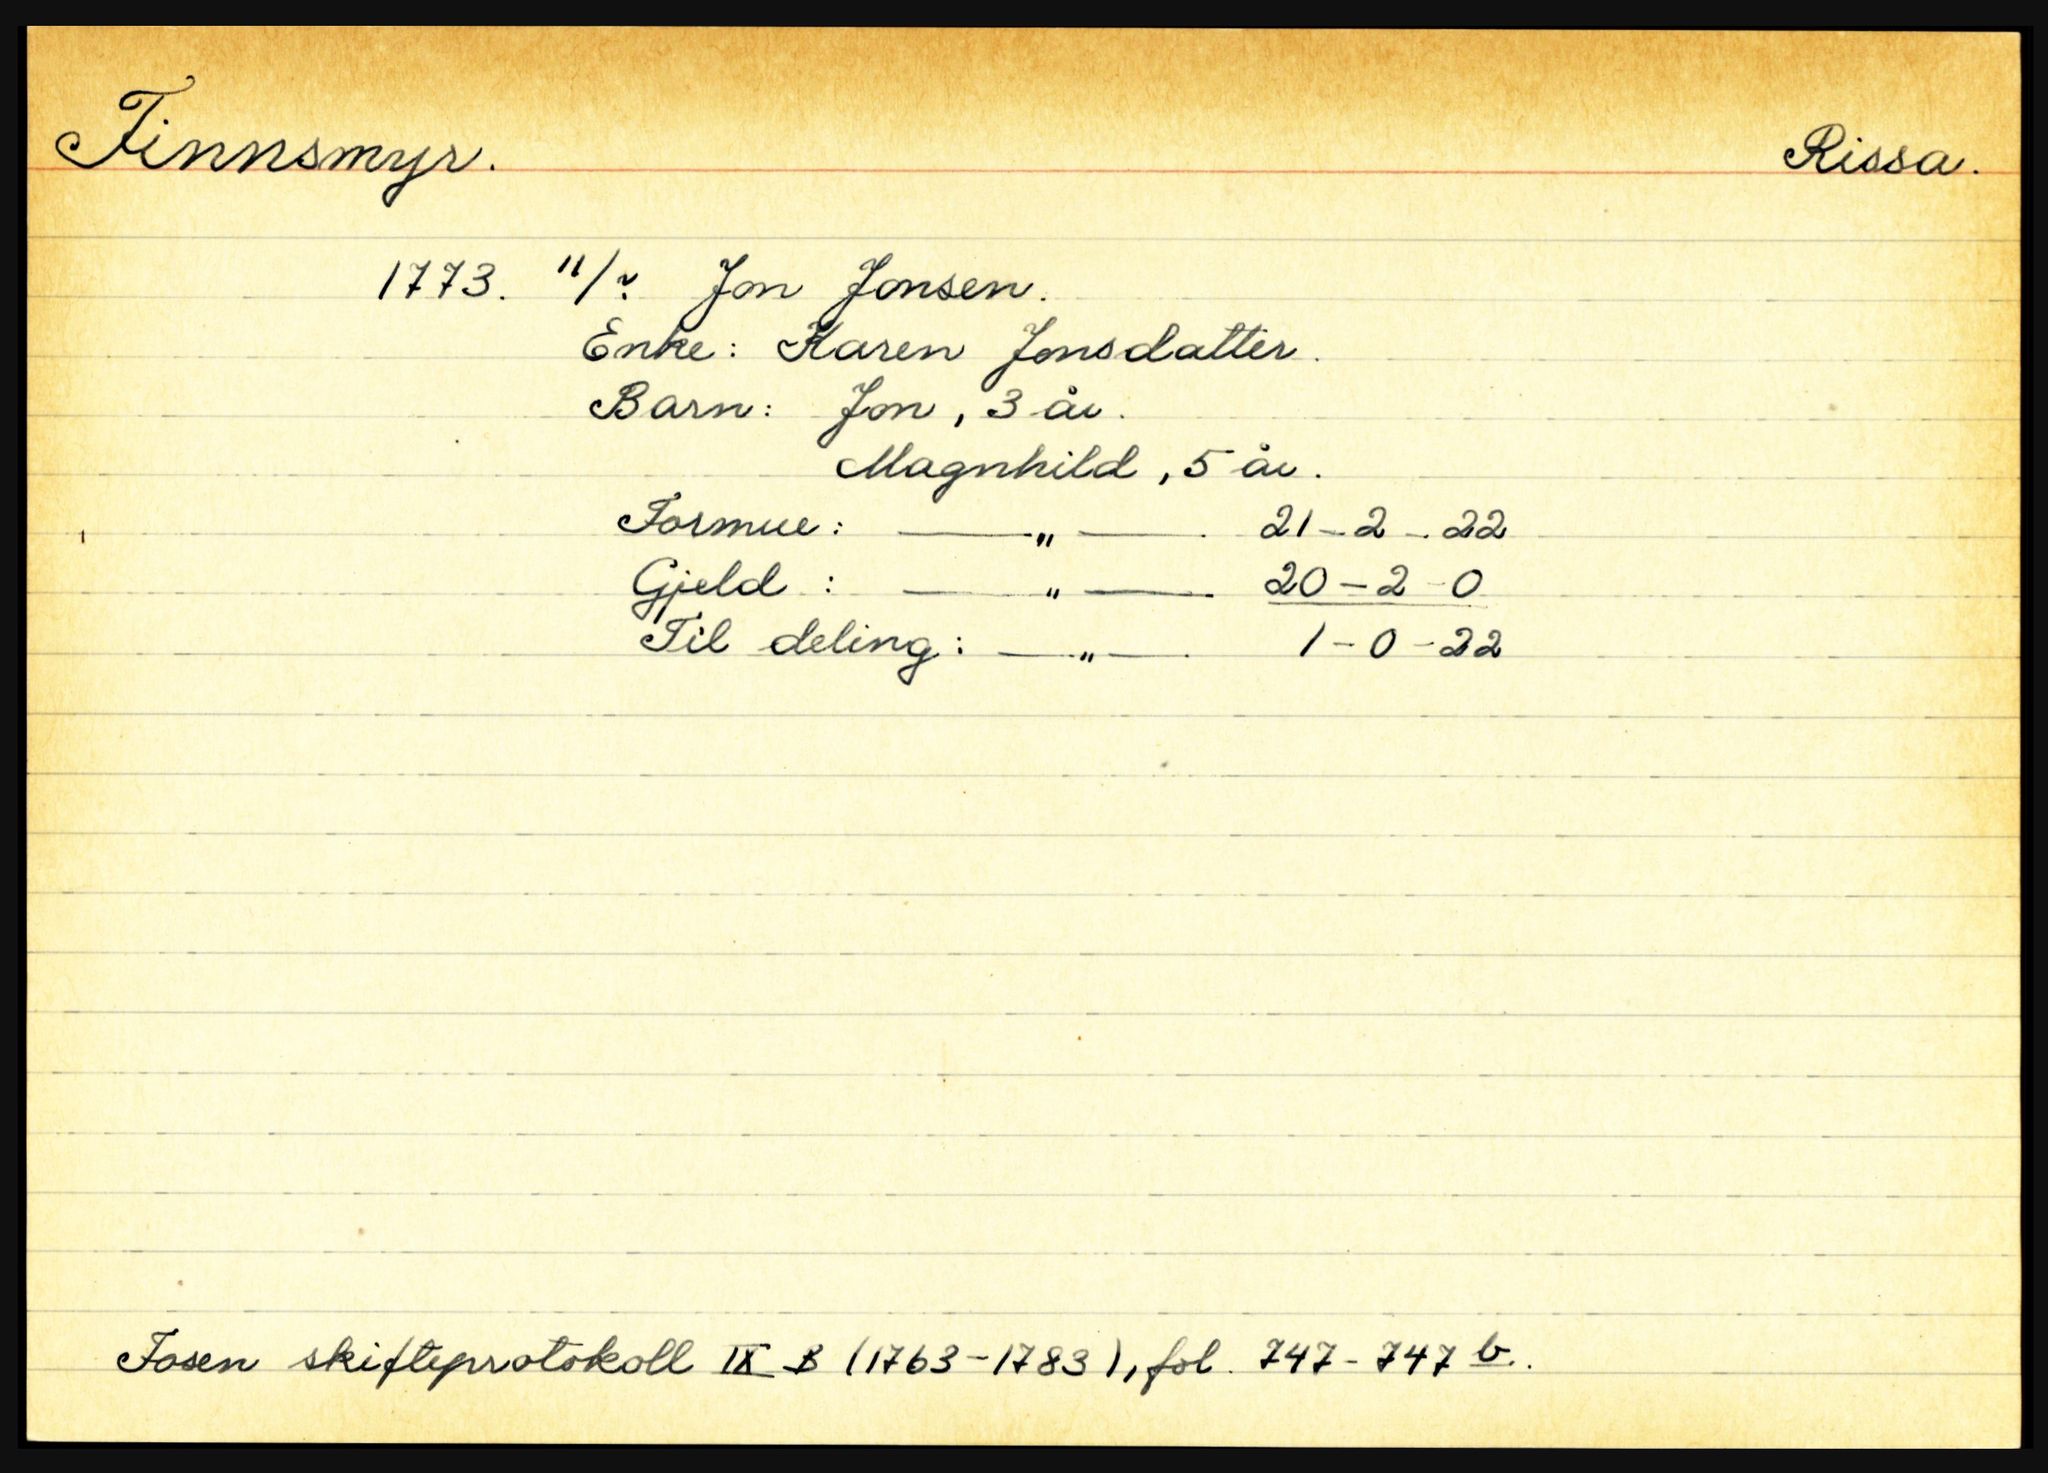 Finnsmyr. Rissa.
1773. 11/?. Jon Jonsen.
Enke: Karen Jonsdatter.
Barn: Jon, 3 år.
Magnhild, 5 år.
Formue: — " — 21-2-22
Gjeld : — " — 20-2-0
Til deling: — " — 1-0-22
Fosen skifteprotokoll IX B (1763-1783), fol. 747-747 b.